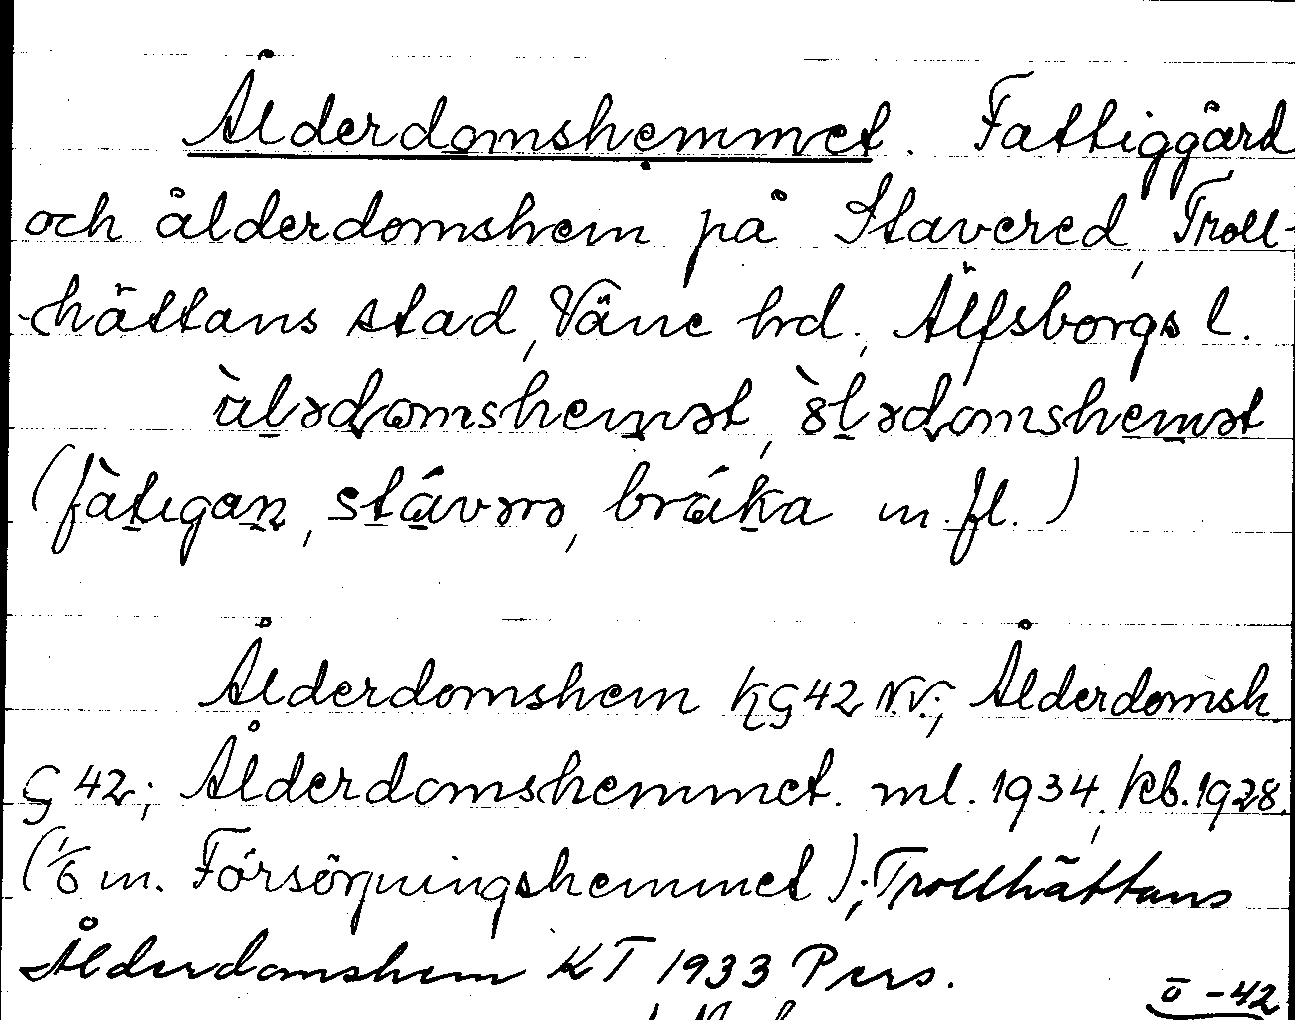 Ålderdomshemmet. Fattiggård
och ålderdomshem på Stavered, Troll-
hättans stad, Väne hrd., Älfsborgs l.
(fàtıgaṉ, stávərə, bráka m. fl.)
Ålderdomshem KG42 N.V.; Ålderdomsh.
G 42; Ålderdomshemmet. ml. 1934, kb. 1928.
(1/6 m. Försörjningshemmet); Trollhättans
Ålderdomshem KT 1933 Pers.
II - 42